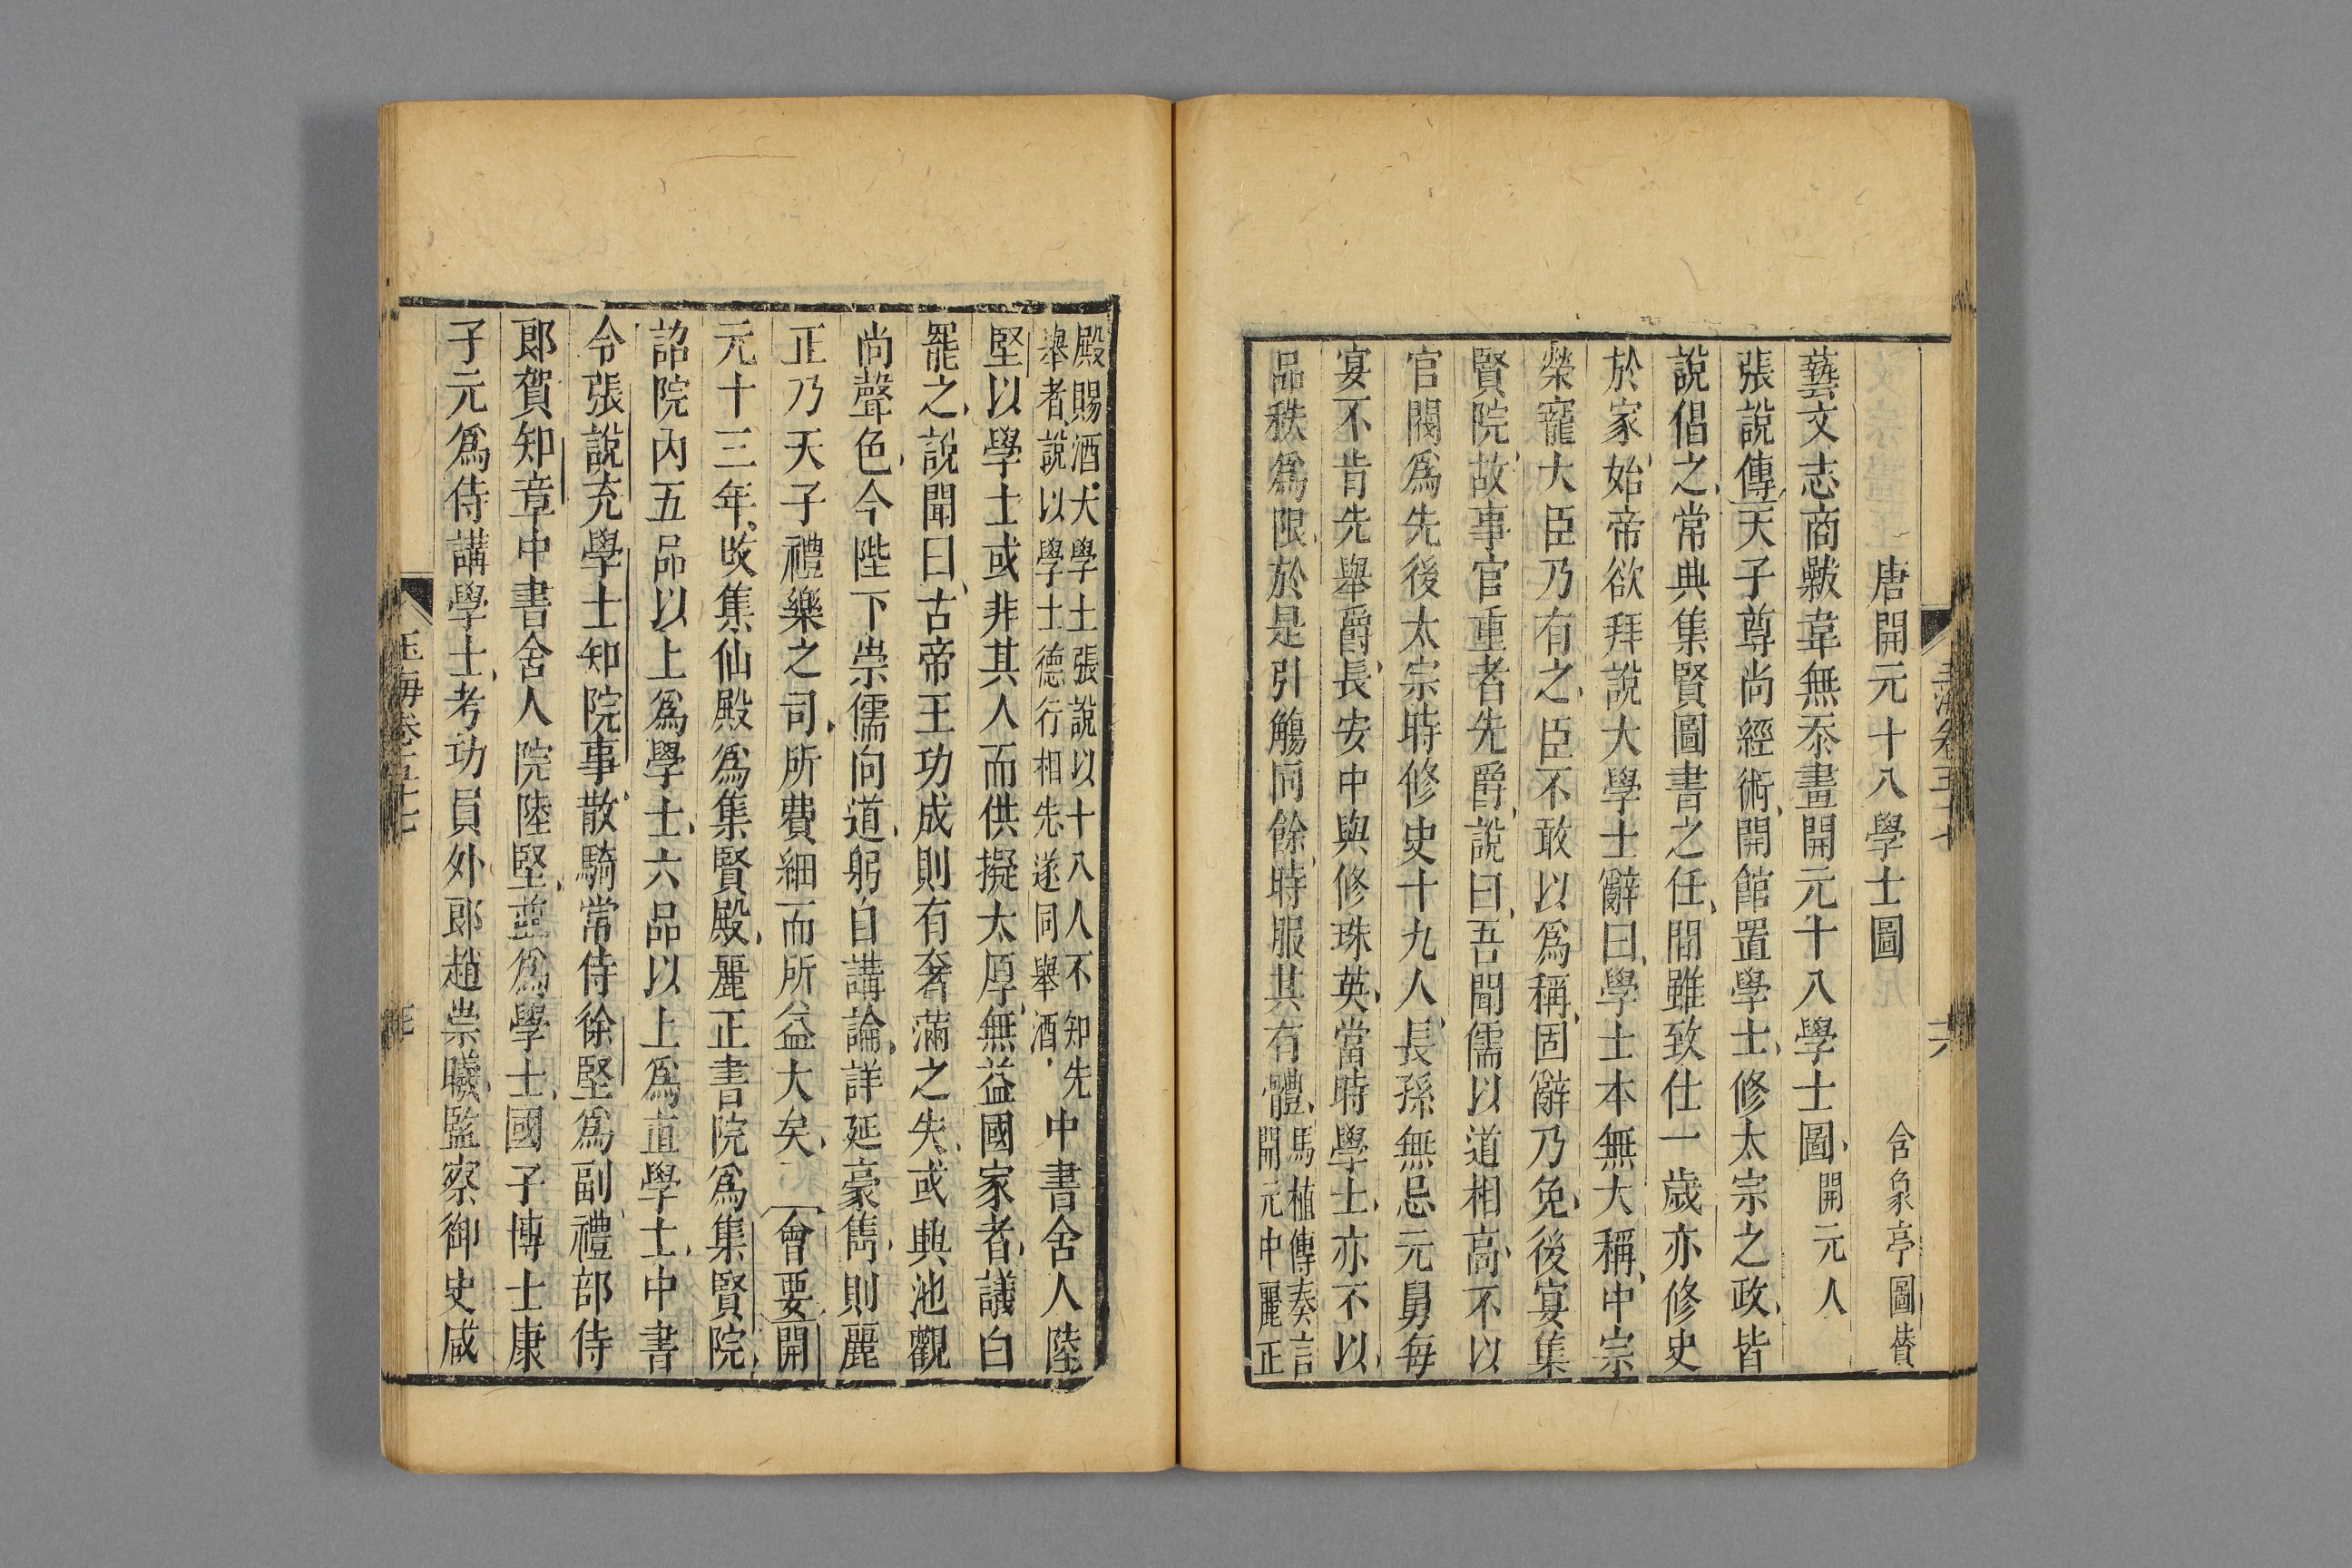 唐開元十八學士圖　含象亭圖賛
藝文志商敤韋無忝畫開元十八學士圖開元人
張說傳天子尊尚經術開館置學士修太宗之政皆
說倡之常典集賢圖書之任間雖致仕一歲亦修史
於家始帝欲拜說大學士辭曰學士本無大稱中宗
榮寵大臣乃有之臣不敢以爲稱固辭乃免後宴集
賢院故事官重者先爵說曰吾聞儒以道相高不以
官閥爲先後太宗時修史十九人長孫無忌元舅每
宴不肯先舉爵長安中與修珠英當時學士亦不以
品秩爲限於是引觴同餘時服其有體馬植傳奏言開元中麗正
玉海卷五十七
六
殿賜酒大學士張說以十八人不知先舉者說以學士德行相先遂同舉酒中書舍人陸
堅以學士或非其人而供擬太厚無益國家者議白
罷之說聞曰古帝王功成則有奢滿之失或興池觀
尚聲色今陛下崇儒向道躬自講論詳延豪雋則麗
正乃天子禮樂之司所費細而所益大矣會要開
元十三年改集仙殿爲集賢殿麗正書院爲集賢院
詔院內五品以上爲學士六品以上爲直學士中書
令張說充學士知院事散騎常侍徐堅爲副禮部侍
郎賀知章中書舍人院陸堅並爲學士國子博士康
子元爲侍講學士考功員外郎趙崇曦監察御史咸
玉海卷五十七